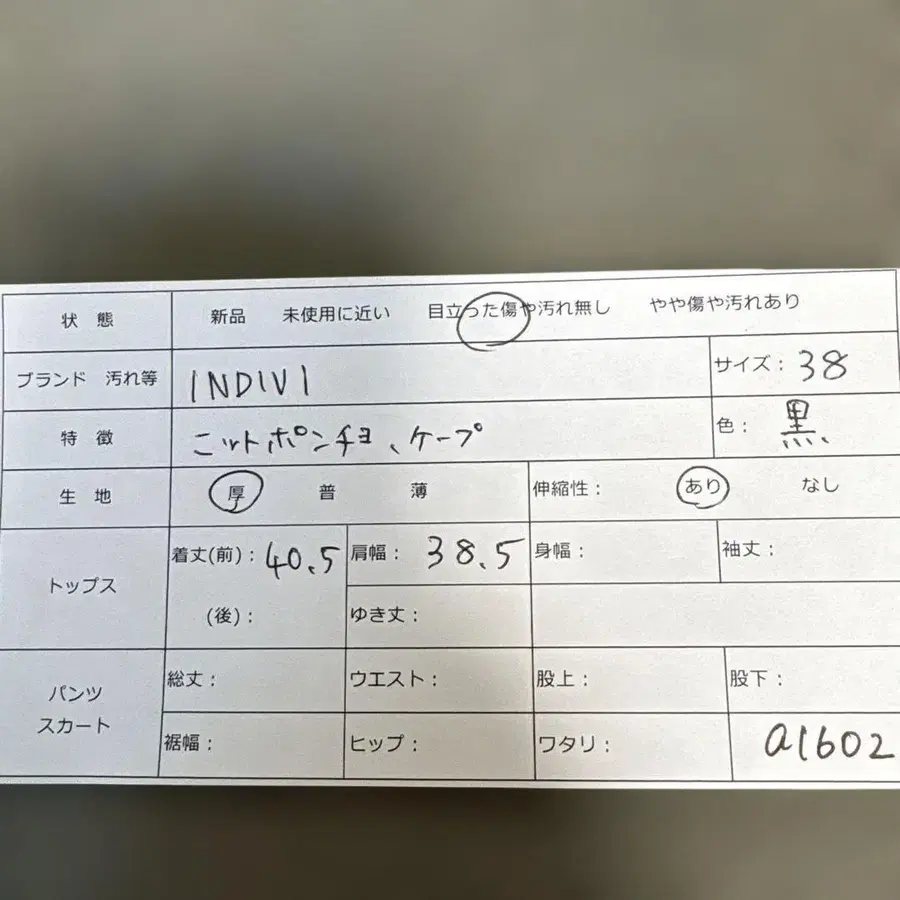 状 態 新品 未使用に近い 目立った傷や汚れ無し やや傷や汚れあり
ブランド 汚れ等 INDIVI サイズ： 38
特 徴 ニットポンチョ、ケープ 色： 黒
生 地 厚 普 薄 伸縮性： あり なし
トップス 着丈(前)： 40.5 肩幅： 38.5 身幅： 袖丈：
(後)： ゆき丈：
パンツ スカート 総丈： ウエスト： 股上： 股下：
裾幅： ヒップ： ワタリ： a1602